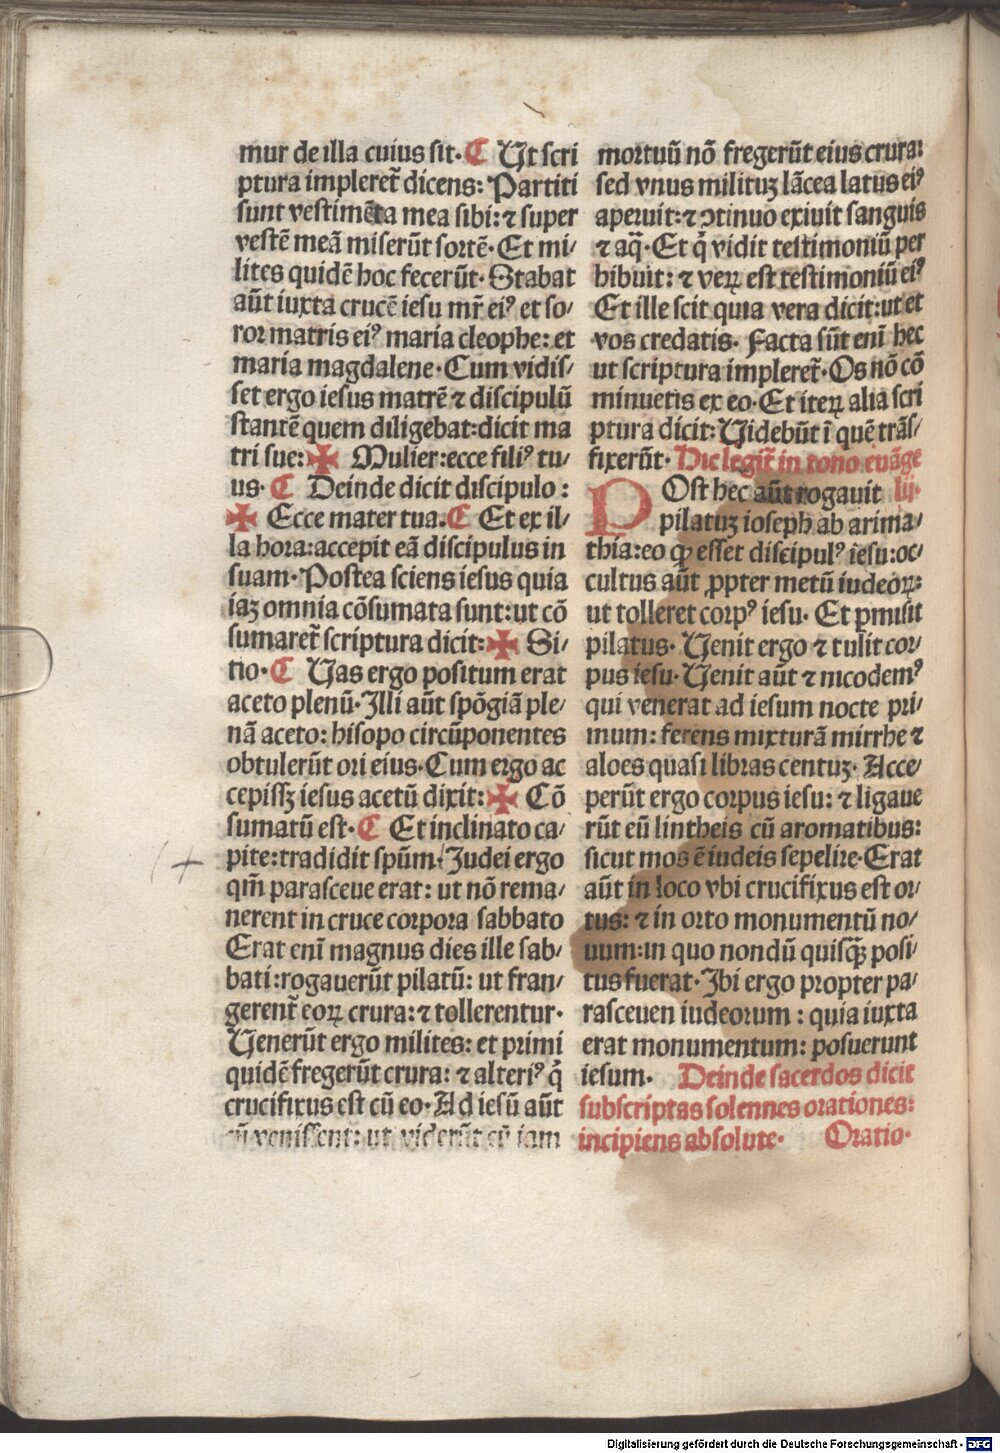 mur de illa cuius sit· C Ut scri
ptura impleret̃ dicens: Partiti
sunt vestimẽta mea sibi: ⁊ super
vestẽ meã miserũt sortẽ· Et mi⸗
lites quidẽ hoc fecerũt· Stabat
aũt iuxta crucẽ iesu mr̃ eiꝰ et so⸗
ror matris eiꝰ maria cleophe: et
maria magdalene· Cum vidis⸗
set ergo iesus matrẽ ⁊ discipulũ
stantẽ quem diligebat: dicit ma
tri sue: ✠ Mulier: ecce filiꝰ tu⸗
us· C Deinde dicit discipulo :
✠ Ecce mater tua. C Et ex il⸗
la hora: accepit eã discipulus in
suam· Postea sciens iesus quia
iaꝫ omnia cõsumata sunt: ut cõ
sumaret̃ scriptura dicit: ✠ Si⸗
tio· C Uas ergo positum erat
aceto plenũ· Illi aũt spõgiã ple⸗
nã aceto: hisopo circũponentes
obtulerũt ori eius· Cum ergo ac
cepissꝫ iesus acetũ dixit: ✠ Cõ
sumatũ est· C Et inclinato ca⸗
pite: tradidit spũm· Judei ergo
qm̃ parasceue erat: ut nõ rema⸗
nerent in cruce corpora sabbato
Erat enĩ magnus dies ille sab⸗
bati: rogauerũt pilatũ: ut fran⸗
gerent̃ eoꝝ crura: ⁊ tollerentur·
Uenerũt ergo milites: et primi
quidẽ fregerũt crura: ⁊ alteriꝰ q̇
crucifixus est cũ eo· Ad iesũ aũt
cũ venissent: ut viderũt eũ iam
mortuũ nõ fregerũt eius crura:
sed vnus milituꝫ lãcea latus eiꝰ
aperuit: ⁊ ↄtinuo exiuit sanguis
⁊ aq̃· Et q̇ vidit testimoniũ per
hibuit: ⁊ veꝝ est testimoniũ eiꝰ
Et ille scit quia vera dicit: ut et
vos credatis· Facta sũt enĩ hec
ut scriptura impleret̃· Os nõ cõ
minuetis ex eo· Et iteꝝ alia scri
ptura dicit: Uidebũt ĩ quẽ trãs⸗
fixerũt· Hic legit̃ in tono euãge
POst hec aũt rogauit lij·
pilatuꝫ ioseph ab arima⸗
thia: eo ꝙ esset discipulꝰ iesu: oc⸗
cultus aũt ꝓpter metũ iudeoꝝ:
ut tolleret corpꝰ iesu· Et ꝑmisit
pilatus· Uenit ergo ⁊ tulit cor⸗
pus iesu· Uenit aũt ⁊ nicodemꝰ
qui venerat ad iesum nocte pri⸗
mum: ferens mixturã mirrhe ⁊
aloes quasi libras centuꝫ· Acce⸗
perũt ergo corpus iesu: ⁊ ligaue
rũt eũ lintheis cũ aromatibus:
sicut mos ẽ iudeis sepelire· Erat
aũt in loco vbi crucifixus est or⸗
tus: ⁊ in orto monumentũ no⸗
uum: in quo nondũ quisq̃ȝ posi⸗
tus fuerat· Ibi ergo propter pa⸗
rasceuen iudeorum : quia iuxta
erat monumentum: posuerunt
iesum· Deinde sacerdos dicit
subscriptas solennes orationes:
incipiens absolute· Oratio·
Digitalisierung gefördert durch die Deutsche Forschungsgemeinschaft - DFG